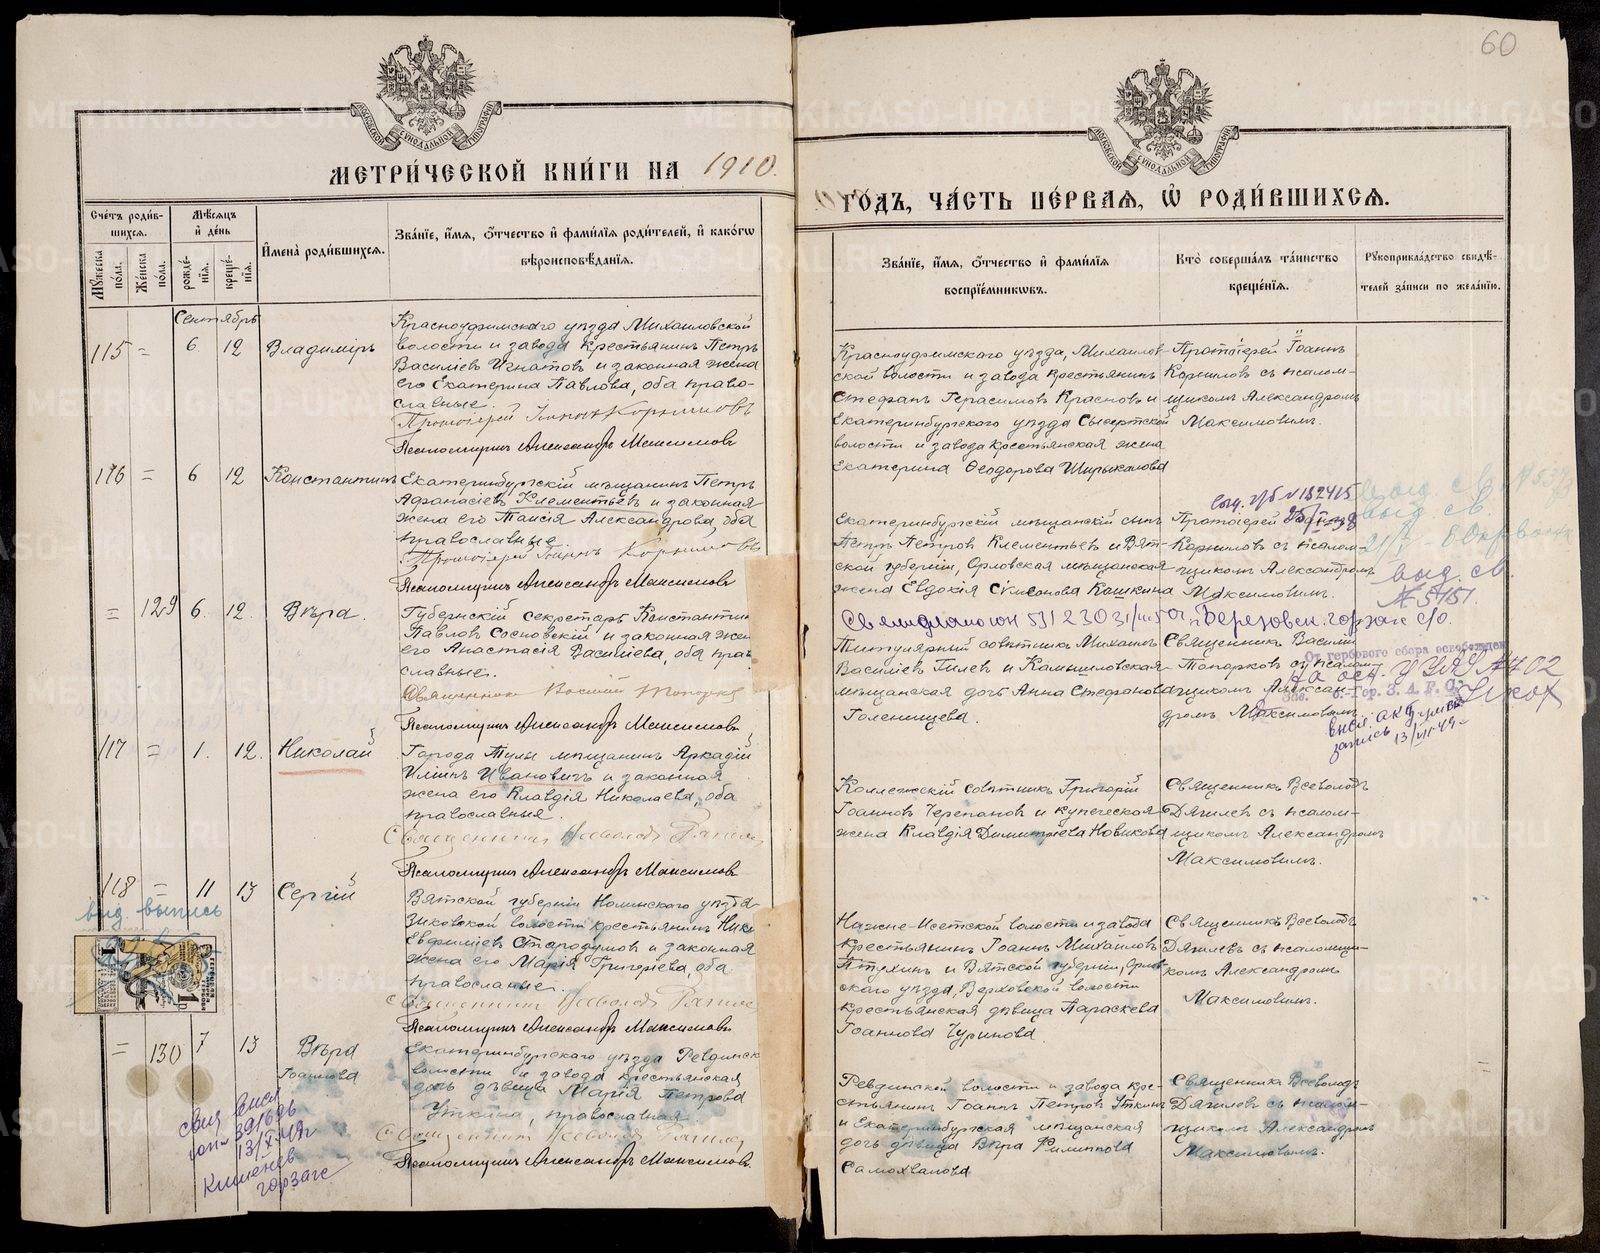 60
МЕТРИ́ЧЕСКОЙ КНИ́ГИ НА 1910.
ГО́ДЪ, ЧА́СТЬ ПЕ́РВАѦ, Ѡ҆ РОДИ́ВШИХСѦ.
Сче́тъ роди́в-
шихсѧ.
Мѣ́сѧцъ
и҆ де́нь
Мꙋ́жеска
по́ла.
Же́нска
по́ла.
рожде́-
нїѧ.
креще́-
нїѧ.
И҆мена̀ роди́вшихсѧ.
Зва́нїе, и҆́мѧ, ѻ҆́тчество и҆ фами́лїѧ роди́телей, и҆ како́гѡ
вѣроисповѣ́данїѧ.
Зва́нїе, и҆́мѧ, ѻ҆́тчество и҆ фами́лїѧ
воспрїе́мникѡвъ.
Кто̀ соверша́лъ та́инство
креще́нїѧ.
Рꙋкоприкла́дство свидѣ́-
телей за́писи по жела́нїю.
Сентябрь
115 = 6. 12 Владимiръ
Красноуфимскаго уѣзда Михайловской
волости и завода крестьянинъ Петръ
Василiевъ Игнатовъ и законная жена
его Екатерина Павлова, оба право-
славные.
Протоiерей Iоаннъ Корниловъ
Псаломщикъ Александръ Максимовъ
Красноуфимскаго уѣзда, Михайлов-
ской волости и завода крестьянинъ
Стефанъ Герасимовъ Красновъ и
Екатеринбургскаго уѣзда Сысертской
волости и завода крестьянская жена
Екатерина Ѳеодорова Ширыкалова
Протоiерей Iоаннъ
Корниловъ съ псалом-
щикомъ Александромъ
Максимовымъ.
116 = 6 12 Константинъ
Екатеринбургскiй мѣщанинъ Петръ
Афанасiевъ Клементьевъ и законная
жена его Таисiя Александрова, оба
православные
Протоiерей Iоаннъ Корниловъ
Псаломщикъ Александръ Максимовъ
Екатеринбургскiй мѣщанскiй сынъ
Петръ Петровъ Клементьевъ и Вят-
ской губернiи, Орловская мѣщанская
жена Евдокiя Симеонова Кошкина
Протоiерей
Корниловъ съ псалом-
щикомъ Александромъ
Максимовымъ.
выд. св.
выд. св.
№ 5151
= 129 6. 12. Вѣра.
Губернскiй секретарь Константинъ
Павловъ Сосновскiй и законная жена
его Анастасiя Василiева, оба пра-
славные.
Священникъ Василiй Топорковъ
Псаломщикъ Александръ Максимовъ
Титулярный совѣтникъ Михаилъ
Василiевъ Гилевъ и Камышловская
мѣщанская дочь Анна Стефанова
Голенищева.
Священникъ Василiй
Топорковъ съ псалом-
щикомъ Алексан-
дромъ Максимовымъ.
От гербового сбора освобожден
117 = 1. 12. Николай
Города Тулы мѣщанинъ Аркадiй
Илiинъ Ивановичъ и законная
жена его Клавдiя Николаева, оба
православные.
Псаломщикъ Александръ Максимовъ
Коллежскiй совѣтникъ Григорiй
Iоанновъ Черепановъ и купеческая
жена Клавдiя Димитрiева Новикова
Священникъ Всеволодъ
Дягилевъ съ псалом-
щикомъ Александромъ
Максимовымъ.
118 = 11 13 Сергiй
выд. выпись
Вятской губернiи Нолинскаго уѣзда
Зыковской волости крестьянинъ Нико
Евфимiевъ Стародумовъ и законная
жена его Марiя Григорiева, оба
православные.
Псаломщикъ Александръ Максимовъ
Нижне-Исетской волости и завода
крестьянинъ Iоаннъ Михаиловъ
Птухинъ и Вятской губернiи, Орлов-
скаго уѣзда, Верховской волости
крестьянская дѣвица Параскева
Iоаннова Чуринова.
Священникъ Всеволодъ
Дягилевъ съ псаломщи-
комъ Александромъ
Максимовымъ.
= 130 7 13 Вѣра
Iоаннова
Екатеринбургскаго уѣзда Ревдинск
волости и завода крестьянская
дочь дѣвица Марiя Петрова
Уткина, православная.
Псаломщикъ Александръ Максимовъ.
Ревдинской волости и завода кре-
стьянинъ Iоаннъ Петровъ Уткинъ
и Екатеринбургская мѣщанская
дочь дѣвица Вѣра Филиппова
Самохвалова
Священникъ Всеволодъ
Дягилевъ съ псалом-
щикомъ Александромъ
Максимовымъ.
METRIKI.GASO-URAL.RU